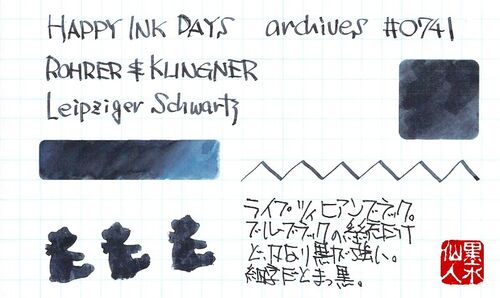 HAPPY INK DAYS archives #0741
ROHRER & KLINGNER
Leipziger Schwartz
ライプツィヒアンブラック。
ブルーブラックの系統だけ
ど、かなり黒が強い。
細字だとまっ黒。
墨水
仙人